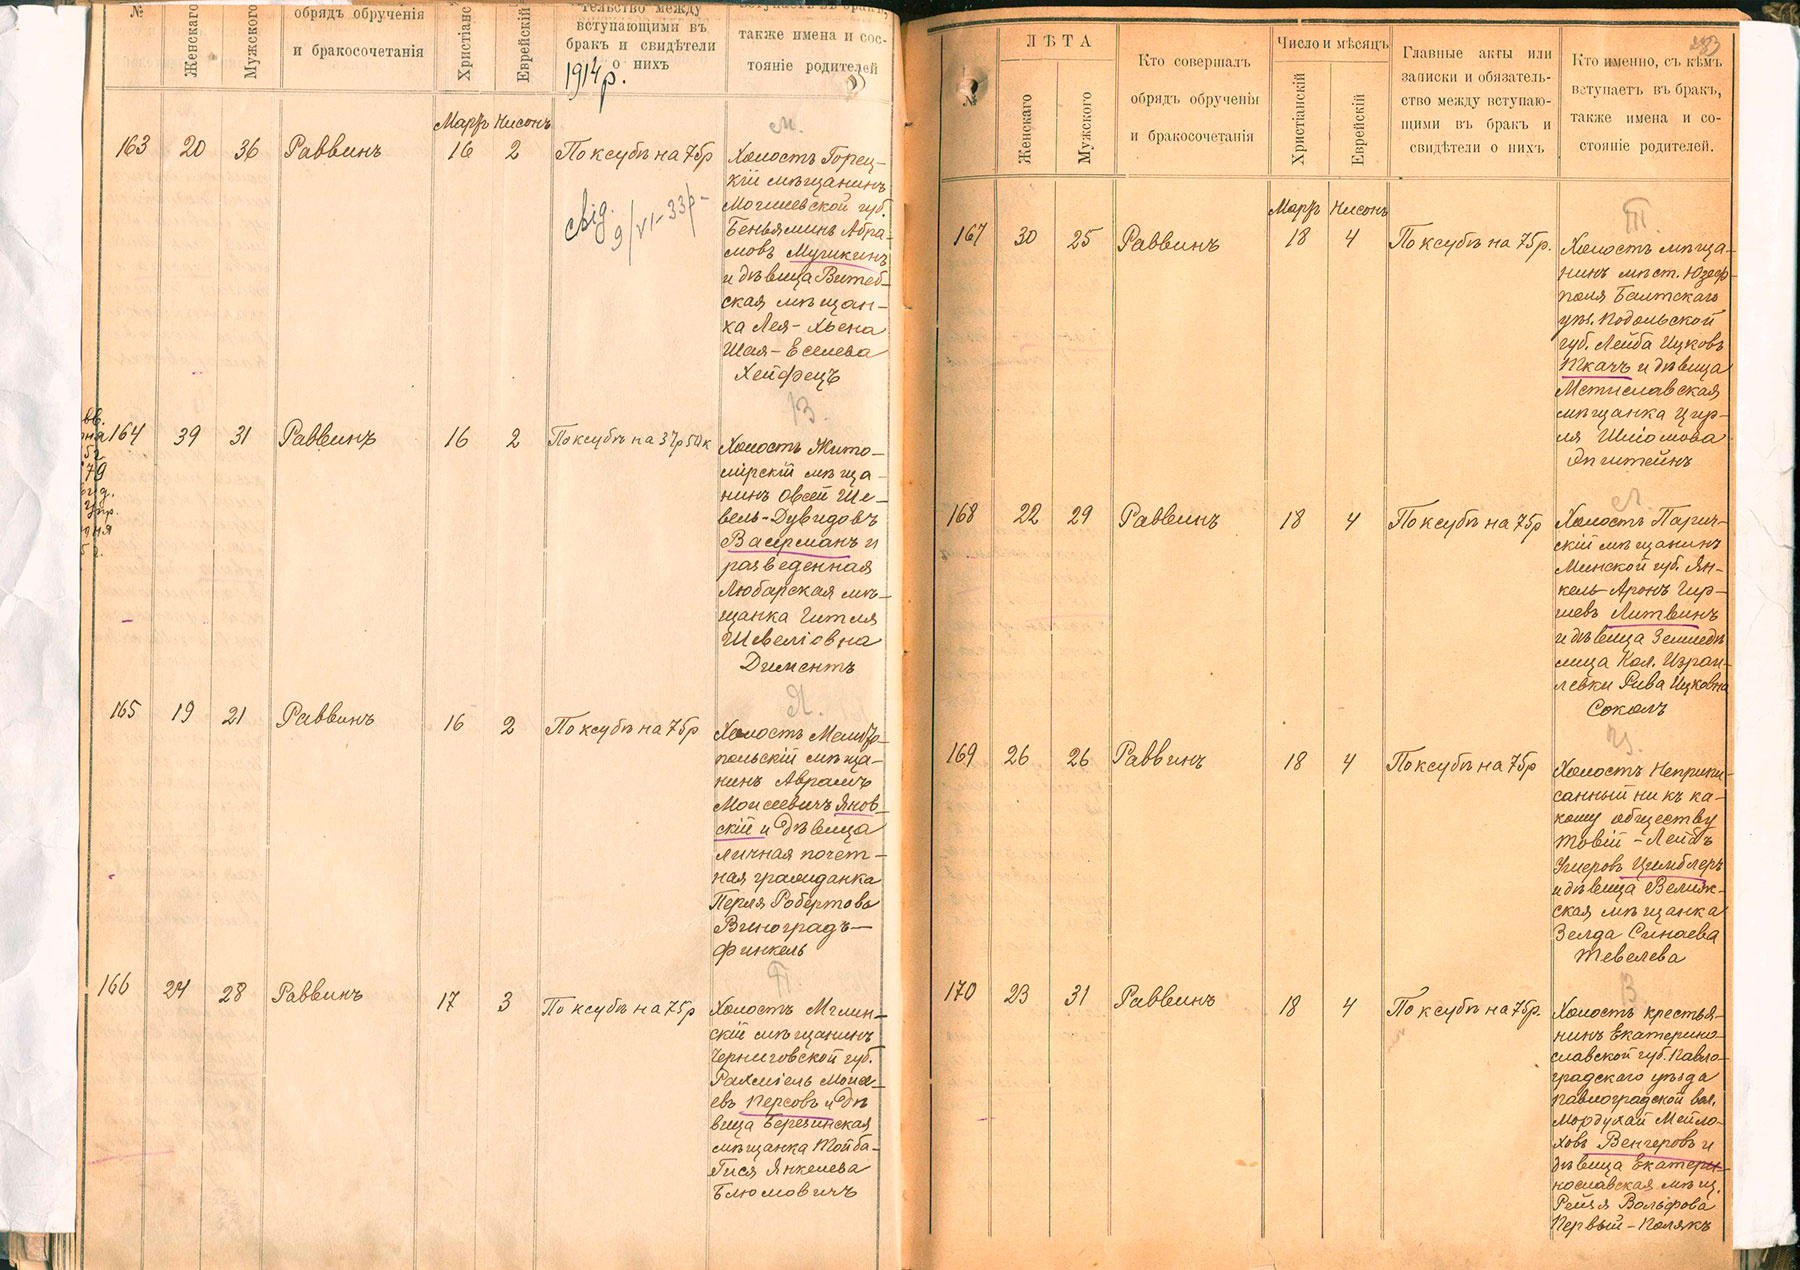 №
Женскаго
Мужского
обрядъ обрученія
и бракосочетанія
Еврейскій
тельство между
вступающими въ
бракъ и свидѣтели
о нихъ
1914 р.
также имена и сос-
тояніе родителей
Мартъ Нисонъ
163 20 36 Раввинъ 16 2 По ксубѣ на 75р
м.
Холостъ Горец-
кій мѣщанинъ
Могилевской губ.
Беньяминъ Абра-
мовъ Мушкинъ
и дѣвица Витеб-
ская мѣщан-
ка Лея-Хьена
Шая-Еселева
Хейфецъ
9/VI-33р-
164 39 31 Раввинъ 16 2 По ксубѣ на 37р50к
В.
Холостъ Жито-
мірскій мѣща-
нинъ Овсей Ше-
вель-Дувидовъ
Васерманъ и
разведенная
Любарская мѣ-
щанка Гитля
Шевеліовна
Диментъ
165 19 21 Раввинъ 16 2 По ксубѣ на 75р
Я.
Холостъ Мелито-
польскій мѣща-
нинъ Аврамъ
Моисеевичъ Янов-
скій и дѣвица
личная почет-
ная гражданка
Перля Робертовъ
Виноградъ-
Финкель
166 24 28 Раввинъ 17 3 По ксубѣ на 75р
П.
Холостъ Мглин-
скій мѣщанинъ
Черниговской губ.
Рахміель Моисе-
евъ Персовъ и дѣ-
вица Березинская
мѣщанка Тойба-
Гися Янкелева
Блюмовичъ
№
ЛѢТА
Женскаго
Мужского
Кто совершалъ
обрядъ обрученія
и бракосочетанія
Число и мѣсяцъ
Христіанскій
Еврейскій
Главные акты или
записки и обязатель-
ство между вступаю-
щими въ бракъ и
свидѣтели о нихъ
Кто именно, съ кѣмъ
вступаетъ въ бракъ,
также имена и со-
стояніе родителей.
Мартъ Нисонъ
167 30 25 Раввинъ 18 4 По ксубѣ на 75р.
Т.
Холостъ мѣща-
нинъ мѣст. Юзеф-
поля Балтскаго
уѣз. Подольской
губ. Лейба Ицковъ
Ткачъ и дѣвица
Мстиславская
мѣщанка Цир-
ля Шліомова
Эпштейнъ
168 22 29 Раввинъ 18 4 По ксубѣ на 75р
Л.
Холостъ Парич-
скій мѣщанинъ
Минской губ. Ян-
кель-Аронъ Гир-
шевъ Литвинъ
и дѣвица Землед-
лица Кол. Израи-
левки Рива Ицковна
Соколъ
169 26 26 Раввинъ 18 4 По ксубѣ на 75р
Ц.
Холостъ Неприпи-
санный ни къ ка-
кому обществу
Товій-Лейбъ
Ушеровъ Цимблеръ
и дѣвица Велиж-
ская мѣщанка
Зелда Синаева
Тевелева
170 23 31 Раввинъ 18 4 По ксубѣ на 75р.
В
Холостъ крестья-
нинъ Екатерино-
славской губ. Павло-
градскаго уѣзда
Павлоградской вол.
Мордухай Мейло-
ховъ Венгеровъ и
дѣвица Екатери-
нославская мѣщ.
Рейзя Вольфова
Первый-Полякъ